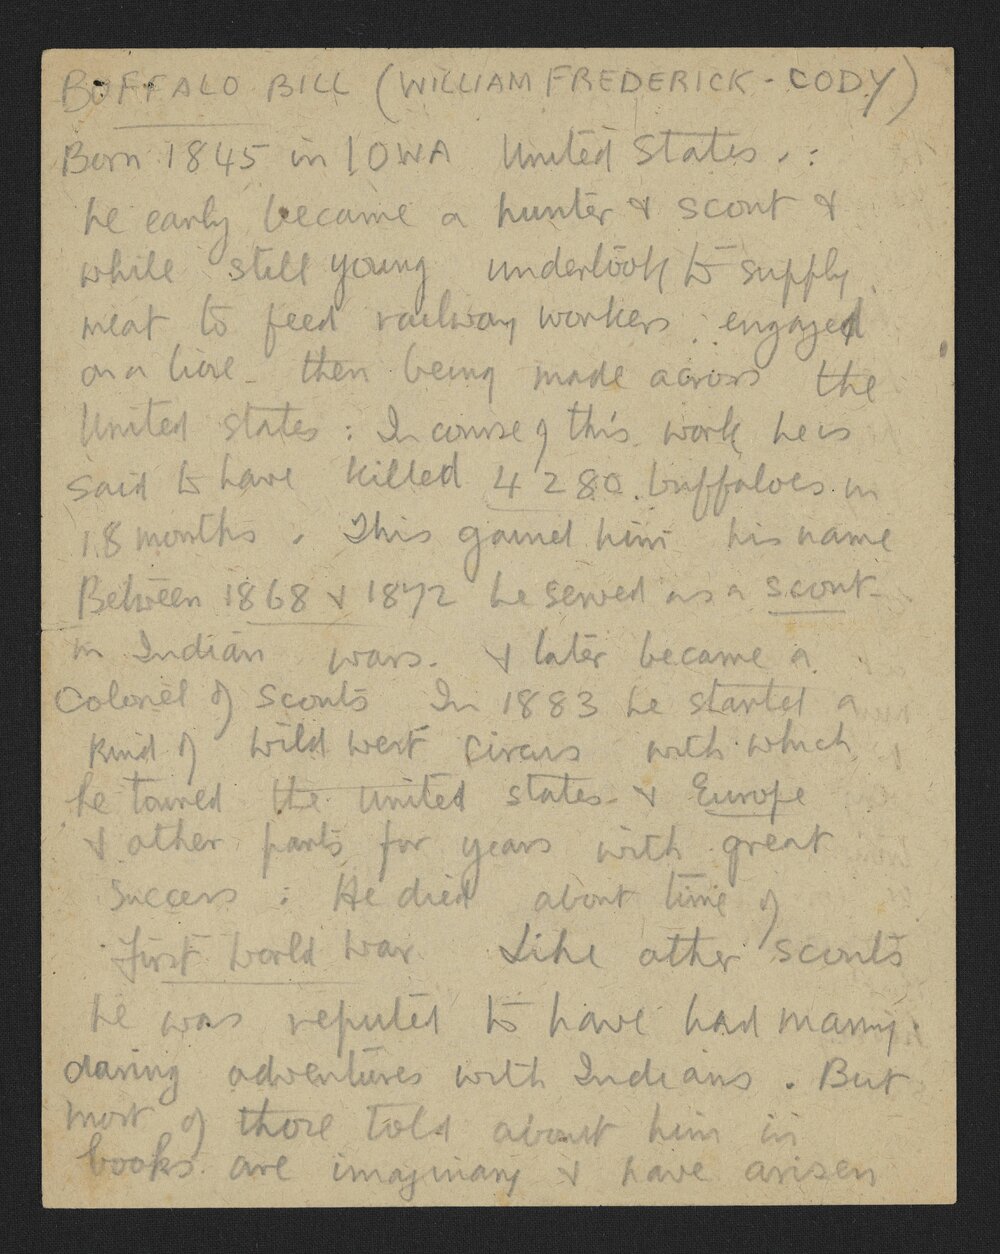 BUFFALO BILL (WILLIAM FREDERICK - CODY)
Born 1845 in IOWA United States. :
he early became a hunter & scout &
while still young undertook to supply
meat to feed railway workers engaged
on a line then being made across the
United States : In course of this work he is
said to have killed 4280 buffaloes in
18 months . This gained him his name
Between 1868 & 1872 he served as a scout
in Indian wars. & later became a
Colonel of Scouts In 1883 he started a
kind of wild west circus with which
he toured the United States & Europe
& other parts for years with great
success : He died about time of
first world war Like other scouts
he was reputed to have had many
daring adventures with Indians . But
most of those told about him in
books are imaginary & have arisen